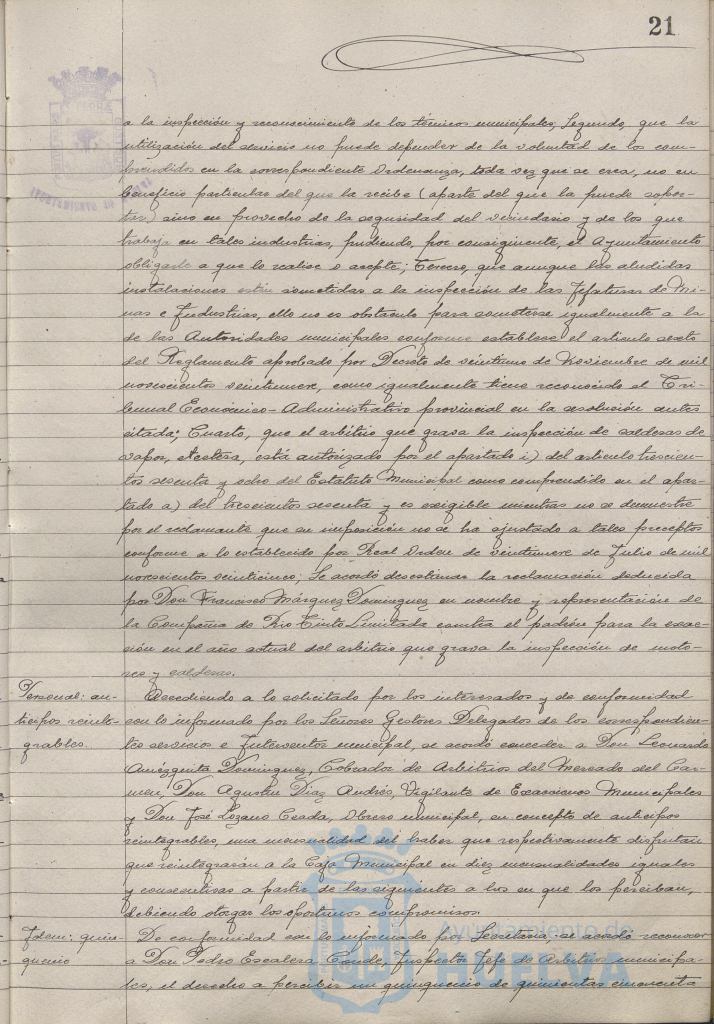 21
a la inspección y reconocimiento de los técnicos municipales; Segundo, que la
utilización del servicio no puede depender de la voluntad de los com-
prendidos en la correspondiente Ordenanza, toda vez que se crea, no en
beneficio particular del que la recibe (aparte del que la pueda repor-
tar) sino en provecho de la seguridad del vecindario y de los que
trabaja en tales industrias, pudiendo, por consiguiente, el Ayuntamiento
obligarle a que lo realice o acepte; Tercero, que aunque las aludidas
instalaciones están sometidas a la inspección de las Jefaturas de Mi-
nas e Industrias, ello no es obstáculo para someterse igualmente a la
de las Autoridades municipales conforme establece el artículo sexto
del Reglamento aprobado por Decreto de veintiuno de Noviembre de mil
novecientos veintinueve, como igualmente tiene reconocido el Tri-
bunal Económico-Administrativo provincial en la resolución antes
citada; Cuarto, que el arbitrio que grava la inspección de calderas de
vapor, etcétera, está autorizado por el apartado i) del artículo trescien-
tos sesenta y ocho del Estatuto Municipal como comprendido en el apar-
tado a) del trescientos sesenta y es exigible mientras no se demuestre
por el reclamante que su imposición no se ha ajustado a tales preceptos
conforme a lo establecido por Real Orden de veintinueve de Julio de mil
novecientos veinticinco; Se acordó desestimar la reclamación deducida
por Don Francisco Márquez Domínguez en nombre y representación de
la Compañía de Rio Tinto Limitada contra el padrón para la exac-
ción en el año actual del arbitrio que grava la inspección de moto-
res y calderas.
Personal: an-
ticipos reinte-
grables.
Accediendo a lo solicitado por los interesados y de conformidad
con lo informado por los Señores Gestores Delegados de los correspondien-
tes servicios e Interventor municipal, se acordó conceder a Don Leonardo
Amézquita Domínguez, Cobrador de Arbitrios del Mercado del Car-
men, Don Agustín Díaz Andrés, Vigilante de Exacciones Municipales
y Don José Lozano Ceada, Obrero municipal, en concepto de anticipos
reintegrables, una mensualidad del haber que respectivamente disfrutan
que reintegrarán a la Caja Municipal en diez mensualidades iguales
y consecutivas a partir de las siguientes a los en que los perciban,
debiendo otorgar los oportunos compromisos.
Idem: quin-
quenio
De conformidad con lo informado por Secretaría, se acordó reconocer
a Don Pedro Escalera Conde, Inspector Jefe de Arbitrios municipa-
les, el derecho a percibir un quinquenio de quinientas cincuenta
Ayuntamiento de
HUELVA